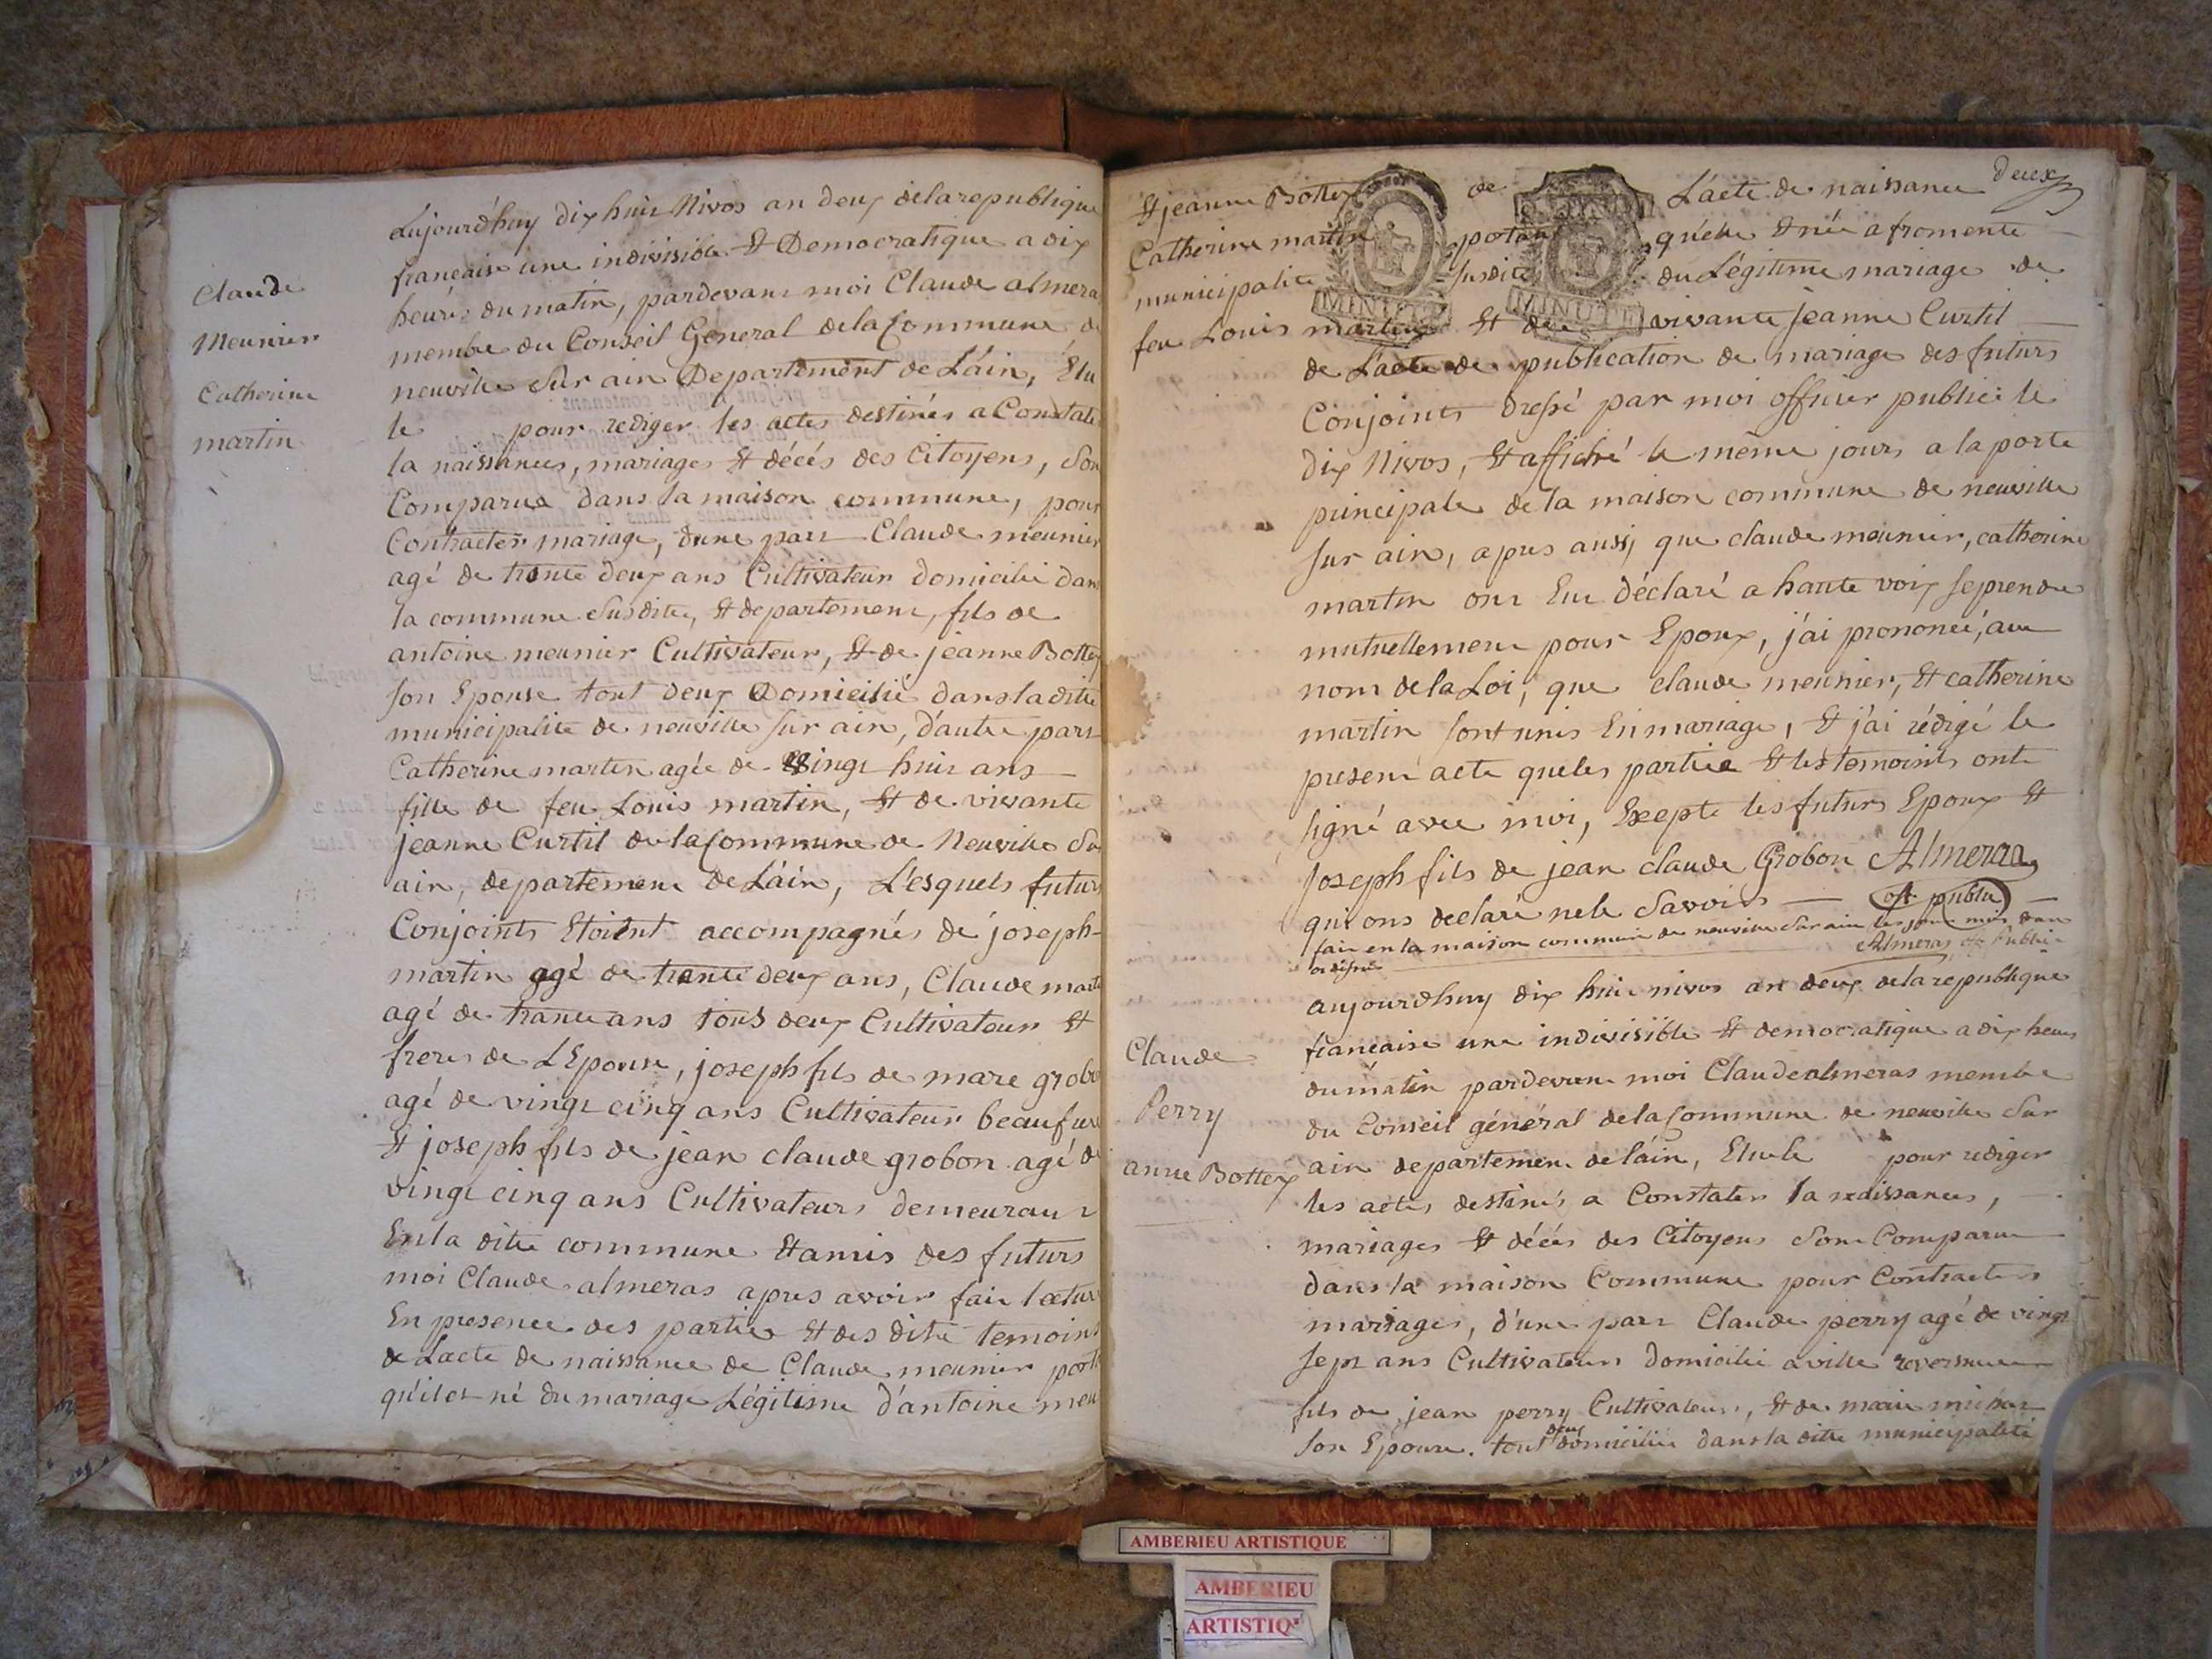 Claude
Meunier
Catherine
martin
Aujourdhuy dix huit Nivos an deux delarepublique
francaise une indivisible Et Democratique a dix
heures du matin, pardevant moi Claude almera
membre du Conseil General delaCommune de
neuville Sur ain Departement de L'ain, Elu
le pour rediger les actes destinés a Constate
la naissances, mariages Et décés des Citoyens, Son
Comparue dans la maison commune, pour
Contracter mariage, dune part Claude meunier
agé de trante deux ans Cultivateur domicilié dans
la commune Susdite, Et departement, fils de
antoine meunier Cultivateur, Et de jeanne Bottex
Son Epouse tout deux Domicilié dansladitte
municipalité de neuville Sur ain, d'autre part
Catherine martin agée de Vingt huit ans
fille de feu Louis martin, Et de vivante
jeanne Curtil de laCommune de Neuville Su
ain, departement deLain, L'esquels futurs
Conjoints Etoient accompagnés de joseph
martin agé de trante deux ans, Claude marti
agé de trante ans tous deux Cultivateur Et
freres de LEpouse, joseph fils de marc grobo
agé de vingt cinq ans Cultivateur beaufrere
Et joseph fils de jean claude grobon agé de
vingt cinq ans Cultivateurs demeurant
En la ditte commune Et amis des futurs
moi Claude almeras apres avoir fait lectur
En presence des parties Et des dite temoins
de Lacte de naissance de Claude meunier porta
qu'il est né du mariage Légitime d'antoine meu
deux
Et jeanne Bottex de L'acte de naissance
Catherine martin portant qu'elle Et née a fromente
municipalité Susdite du Légitime mariage de
feu Louis martin Et de vivante jeanne Curtil
MINUTE MINUTE
de L'acte de publication de mariage des futurs
Conjoints dressé par moi officier public le
dix Nivos, Et affiché le même jours a la porte
principale de la maison commune de neuville
Sur ain, apres aussi que claude meunier, catherine
martin ont Eu déclaré a haute voix Seprendre
mutuellement pour Epoux, j'ai prononcé, au
nom delaLoi, que claude meunier, Et catherine
martin Sont unis En mariage, Et j'ai rédigé le
present acte queles partiee Et les temoints ont
Signé avec moi, Excepte les futurs Epoux Et
joseph fils de jean claude Grobon Almeras
qui ons declaré nele Savoir of. public
fait en la maison commune de neuville Sur ain les jour mois dan
ci dessus Almeras of. Public
Claude
Perry
anne Bottex
aujourdhuy dix huit nivos an deux delarepublique
francaise une indivisible Et democratique a dix heures
dumatin pardevant moi Claude almeras membre
du Conseil général delaCommune de neuville Sur
ain departement delain, Elu le pour rediger
les actes destinés a Constater la naissances,
mariages Et décés des Citoyens Son Comparue
dans la maison Commune pour Contracter
mariages, d'une part Claude perry agé de vingt
Sept ans Cultivateur domicilié a ville reversure
fils de jean perry Cultivateur, Et de marie
Son Epouse. tout deux domicilié dans la ditte municipalité
AMBERIEU ARTISTIQUE
AMBERIEU
ARTISTIQ